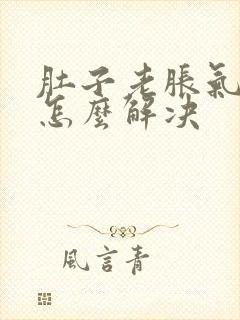 肚子老脹氣
怎麼解决
風言青